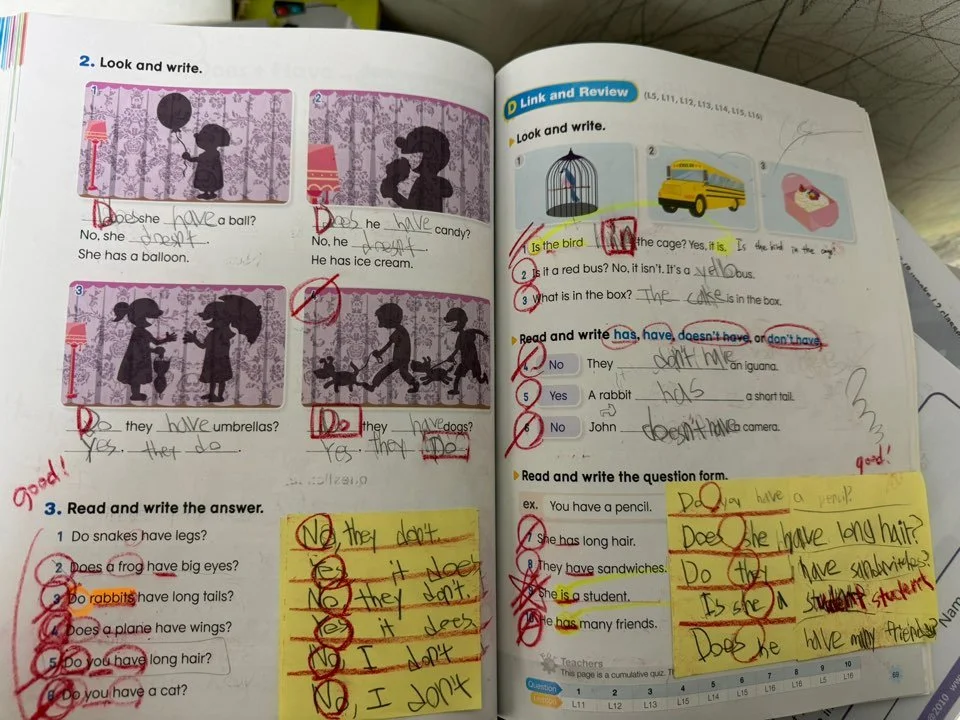 2. Look and write.
1
2
Does she have a ball?
No, she doesn't.
She has a balloon.
Does he have candy?
No, he doesn't.
He has ice cream.
3
Do they have umbrellas?
Yes. they do.
Do they have dogs?
Yes. they Do
good!
3. Read and write the answer.
1 Do snakes have legs?
2 Does a frog have big eyes?
3 Do rabbits have long tails?
4 Does a plane have wings?
5 Do you have long hair?
6 Do you have a cat?
No, they don't.
Yes it does
No they don't.
Yes it does
No I don't
No, I don't
D Link and Review (L5, L11, L12, L13, L14, L15, L16)
Look and write.
1
2
3
1 Is the bird in the cage? Yes, it is. Is the bird in the cage?
2 Is it a red bus? No, it isn't. It's a yello bus.
3 What is in the box? The cake is in the box.
Read and write has, have, doesn't have, or don't have.
4 No They don't have an iguana.
5 Yes A rabbit has a short tail.
6 No John doesn't have a camera.
good!
Read and write the question form.
ex. You have a pencil.
7 She has long hair.
8 They have sandwiches.
9 She is a student.
10 He has many friends.
Do you have a pencil?
Does she have long hair?
Do they have sandwiches?
Is she a student
Does he have many friends?
Teachers
This page is a cumulative quiz.
Question 1 2 3 4 5 6 7 8 9 10
L11 L12 L13 L14 L15 L16 L16 L16 L5 L16
69
Name